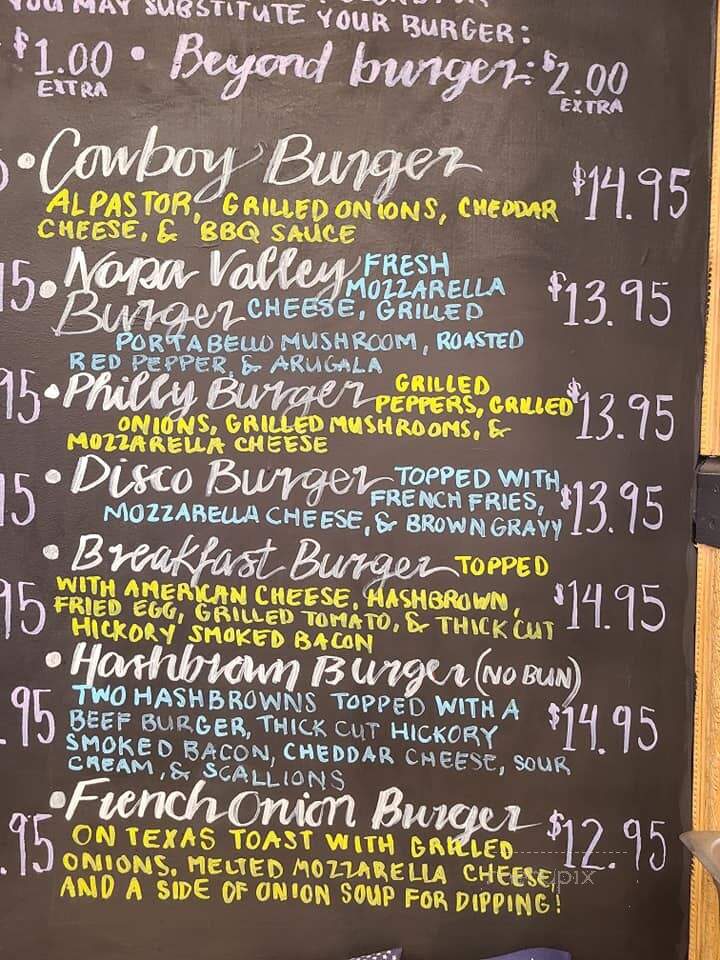 YOU MAY SUBSTITUTE YOUR BURGER:
$1.00 • Beyond burger: $2.00
EXTRA EXTRA
• Cowboy Burger $14.95
ALPASTOR, GRILLED ONIONS, CHEDDAR
CHEESE, & BBQ SAUCE
15 • Napa Valley FRESH
MOZZARELLA
Burger CHEESE, GRILLED $13.95
PORTABELLO MUSHROOM, ROASTED
RED PEPPER, & ARUGALA
95 • Philly Burger GRILLED
PEPPERS, GRILLED $13.95
ONIONS, GRILLED MUSHROOMS, &
MOZZARELLA CHEESE
15 • Disco Burger TOPPED WITH
FRENCH FRIES, $13.95
MOZZARELLA CHEESE, & BROWN GRAVY
• Breakfast Burger TOPPED
95 WITH AMERICAN CHEESE, HASHBROWN, $14.95
FRIED EGG, GRILLED TOMATO, & THICK CUT
HICKORY SMOKED BACON
• Hashbrown Burger (NO BUN)
.95 TWO HASHBROWNS TOPPED WITH A $14.95
BEEF BURGER, THICK CUT HICKORY
SMOKED BACON, CHEDDAR CHEESE, SOUR
CREAM, & SCALLIONS
• French Onion Burger $12.95
.95 ON TEXAS TOAST WITH GRILLED
ONIONS, MELTED MOZZARELLA CHEESE,
AND A SIDE OF ONION SOUP FOR DIPPING!